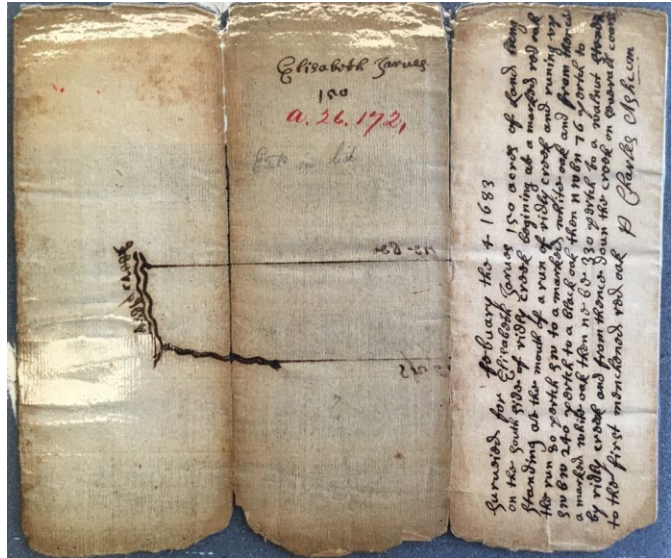 Elisabeth Jarves
150
a. 26. 172,
febuary the 4 1683
Surueied for Elizabeth Jarves 150 acres of Land being
on the South Side of ridly creek begining at a marked red oak
standing at the mouth of a run of ridly creek and runing vp
the run 80 pertch SW to a marked white oak and from thence
240 pertch to a black oak then NWBN 76 pertch to
a marked white oak then 330 pertch to a walnut standing
by ridly creek and from thence down the creek on severall
to the first menchened red oak P Charles Ashcom